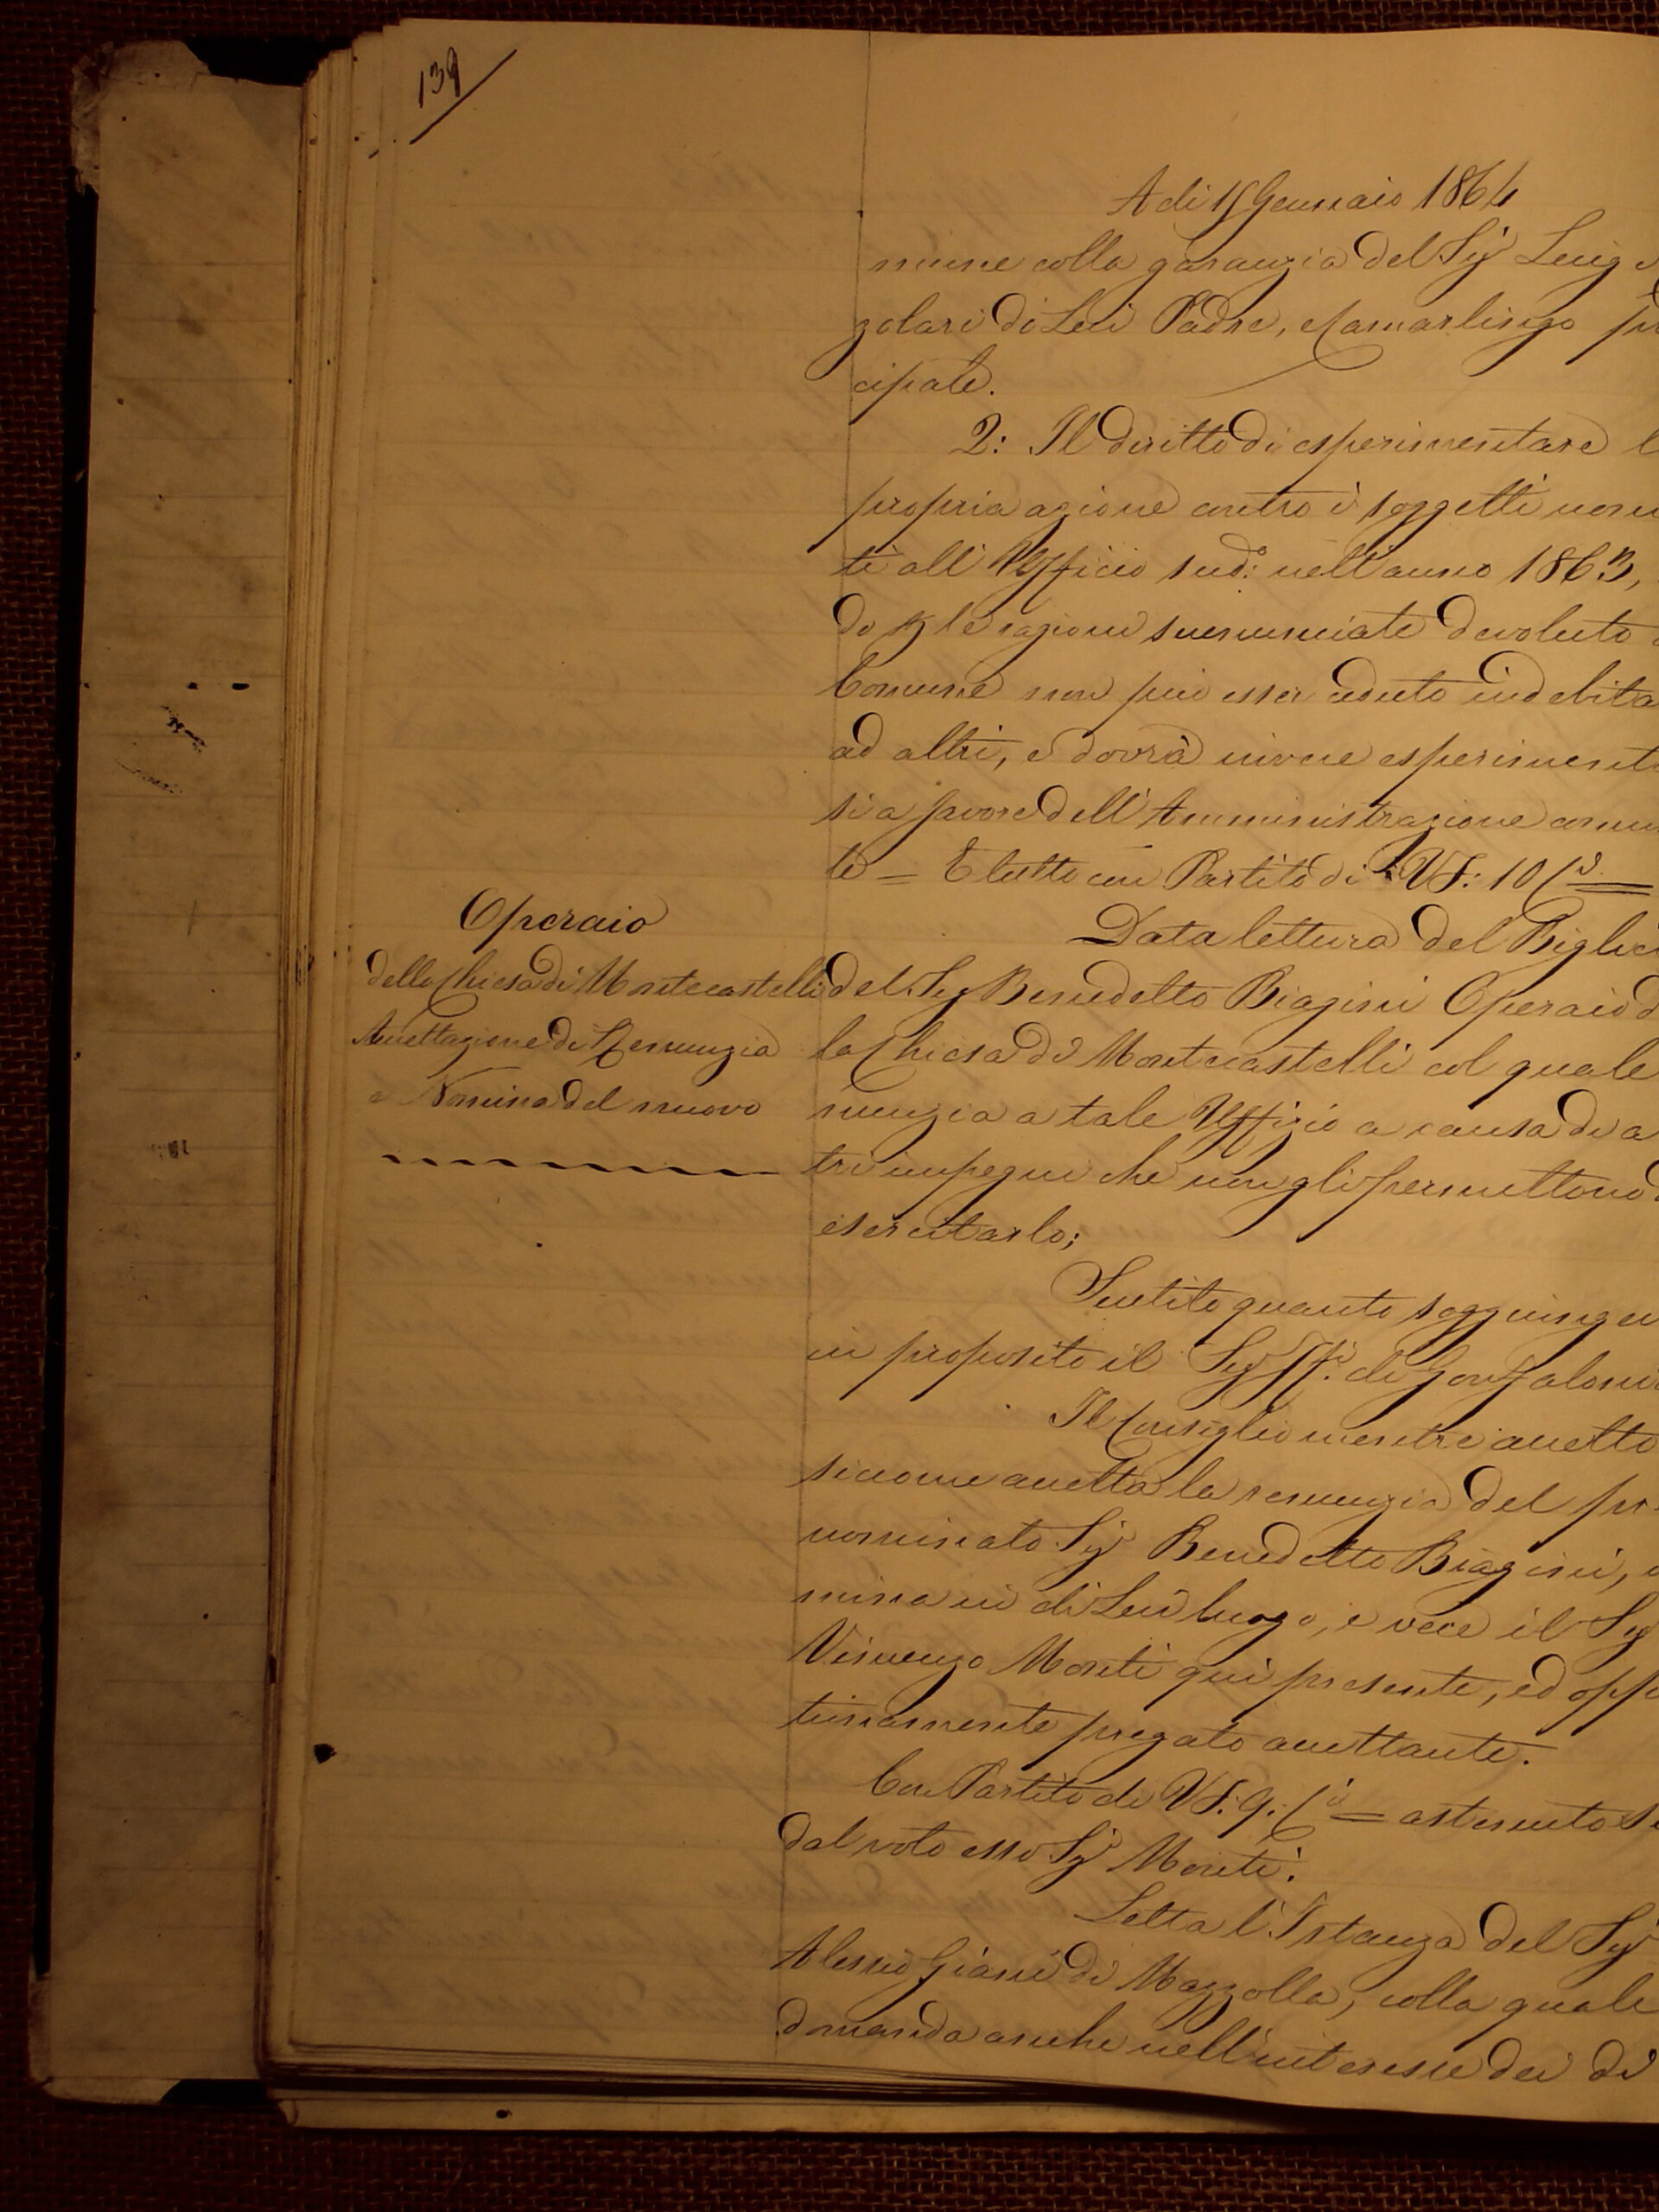 139
A di 15 Gennaio 1864
mune colla garanzia del Sig.r Luigi
zolari di Lui Padre, Camarlingo
cipale.
2: Il diritto di esperimentare l
propria azione contro i soggetti
ti all'Ufficio sud.o nell'anno 1863,
do p le ragioni suenunciate devoluto
Comune non può esser ceduto indebita
ad altri, e dovrà invece esperimenta
si a favore dell'Amministrazione comu
le = E tutto con Partito di VF: 10 C.i =
Operaio
della Chiesa di Montecastelli
Accettazione di Renunzia
e Nomina del nuovo
Data lettura del Bigliet
del Sig. Benedetto Biagini Operaio d
la Chiesa di Montecastelli col quale
nunzia a tale Uffizio a causa di a
tri impegni che non gli permettono d
esercitarlo;
Sentito quanto soggiungeva
in proposito il Sig.r ff.i di Gonfaloni
Il Consiglio mentre accetto
siccome accetta la renunzia del pr
nominato Sig.r Benedetto Biagini,
mina in di Lui luogo, e vece il Sig.r
Vincenzo Monti qui presente, ed oppo
tunamente pregato accettante.
Con Partito di VF: 9. C.i = astenuto si
dal voto esso Sig.r Monti.
Letta l'Istanza del Sig.r
Alessio Giani di Mazzolla, colla quale
domanda anche nell'interesse dei di